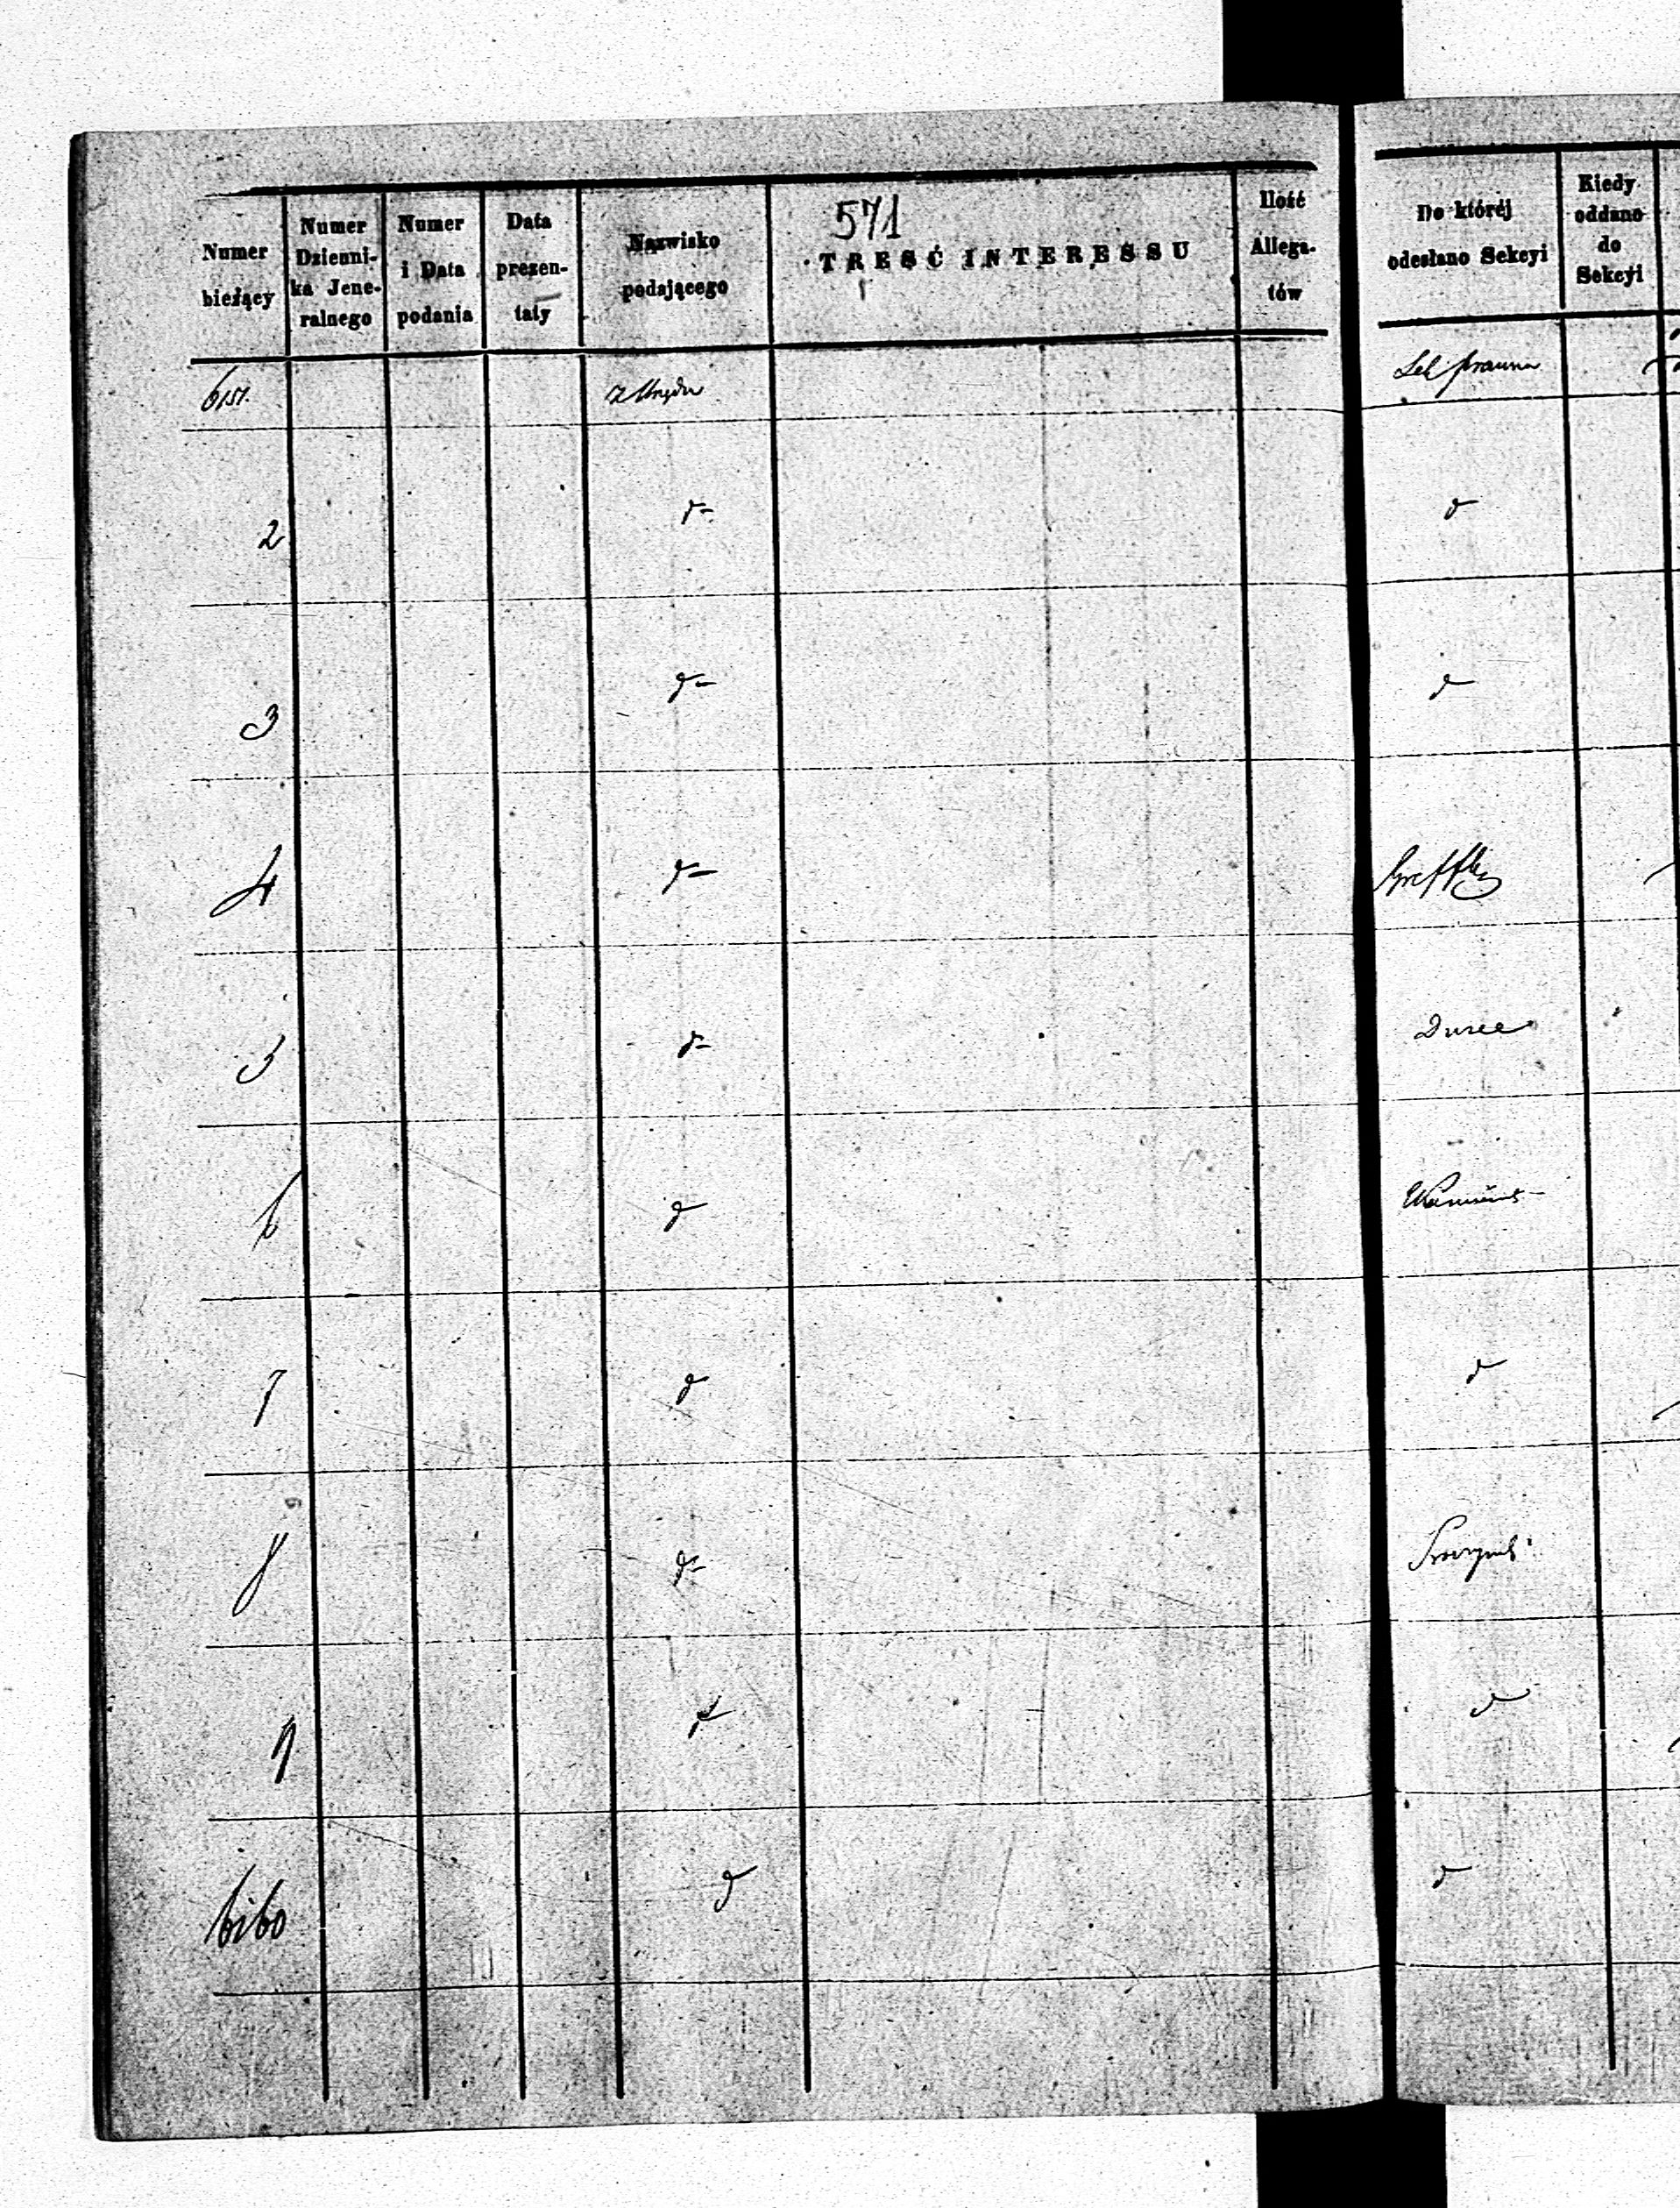 571
Numer bieżący
Numer Dzienni-ka Jene-ralnego
Numer i Data podania
Data prezen-taty
Nazwisko podającego
TREŚĆ INTERESSU
Ilość Allega-tów
Do któréj odesłano Sekcyi
Kiedy oddano do Sekcyi
6151. z Urzędu
2 d- d
3 d- d
4 d-
5 d-
6 d
7 d d
8 d-
9 d d
6160 d d